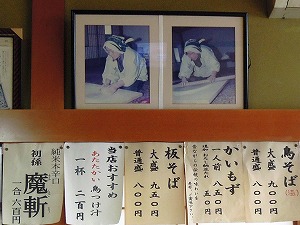 鳥そば
大盛 九五〇円
普通盛 八〇〇円
かいもず
一人前 八五〇円
板そば
大盛 九五〇円
普通盛 八〇〇円
当店おすすめ
あたたかい鳥つけ汁
一杯 二百円
純米本辛口
初孫 魔斬
一合 六百円